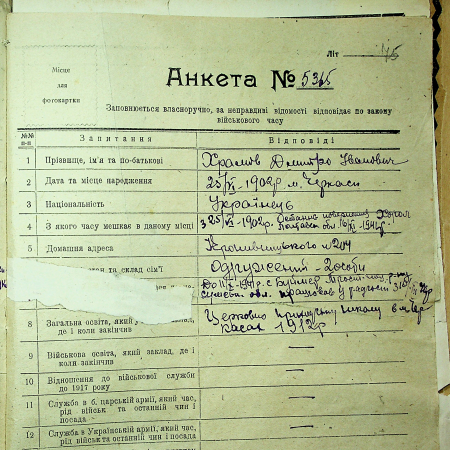 Літ 45
Місце
для
фотокартки
Анкета № 5315
Заповнюється власноручно, за неправдиві відомості відповідає по закону
військового часу
№№
п-п
Запитання
Відповіді
1 Прізвище, ім'я та по-батькові
Храмов Дмитро Іванович
2 Дата та місце народження
25/XI-1902р. м. Черкаси
3 Національність
Українець
4 З якого часу мешкає в даному місці
з 25/XI-1902р. Останнє повернення
5 Домашня адреса
Кропивницького №204
та склад сім'ї
Одружений - 2 особи
8 Загальна освіта, який заклад,
де і коли закінчив
Церковно приходську школу в м. Чер
касах 1912р
9 Військова освіта, який заклад, де і
коли закінчив
10 Відношення до військової служби
до 1917 року
11 Служба в б. царській армії, який час,
рід військ та останній чин і
посада
12 Служба в Українській армії, який час,
рід військ та останній чин і посада